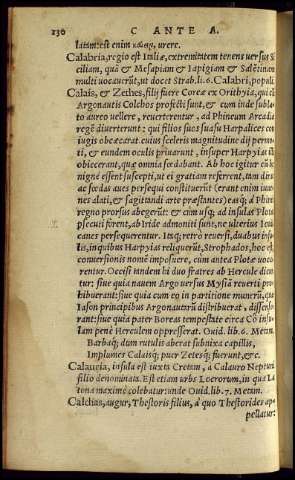 130 C ANTE A.
latism: est enim καίειν, urere.
Calabria, regio est Italiæ, extremitatem tenens versus Si
ciliam, quã & Mesapiam & Iapigiam & Salẽtinam
multi vocauerũt, ut docet Strab. li. 6. Calabri, populi.
Calais, & Zethes, filij fuere Coreæ ex Orithyia, qui cũ
Argonautis Colchos profecti sunt, & cum inde subla-
to aureo vellere, reuerterentur, ad Phineum Arcadiæ
regẽ diuerterunt: qui filios suos suasu Harpalices con
iugis obcæcarat. cuius sceleris magnitudine dij permo-
ti, & eundem oculis priuarunt, insuper Harpyias illi
obiecerant, quæ omnia fœdabant. Ab hoc igitur cũ be-
nigne essent suscepti, ut ei gratiam referrent, tam diras
ac fœdas aues persequi constituerũt (erant enim iuue-
nes alati, & sagittandi arte præstantes) easq; à Phinei
regno prorsus abegerũt: & cum usq; ad insulas Plotas
persecuti sirent, ab Iride admoniti sunt, ne ulterius Iouis
canes persequerentur. Itaq; retrò reuersi, duabus insu-
lis, in quibus Harpyias reliquerũt, Strophades, hoc est,
conuersionis nomẽ imposuere, cum antea Plotæ voca
rentur. Occisi tandem hi duo fratres ab Hercule dicun
tur: siue quia nauem Argo versus Mysiã reuerti pro-
hibuerant: siue quia cum eo in partitione munerũ, quæ
Iason principibus Argonautarũ distribuerat, dissense-
rant: siue quia pater Boreas tempestate circa Cõ insu-
lam penè Herculem oppresserat. Ouid. lib. 6. Metam.
Barbaq; dum rutilis aberat subnixa capillis,
Implumes Calaisq; puer Zetesq; fuerunt, &c.
Calaureia, insula est iuxta Cretam, à Calauro Neptuni
filio denominata. Est etiam urbs Locrorum, in qua La
tona maximè colebatur: unde Ouid. lib. 7. Metam.
Calchas, augur, Thestoris filius, à quo Thestorides ap-
pellatur: